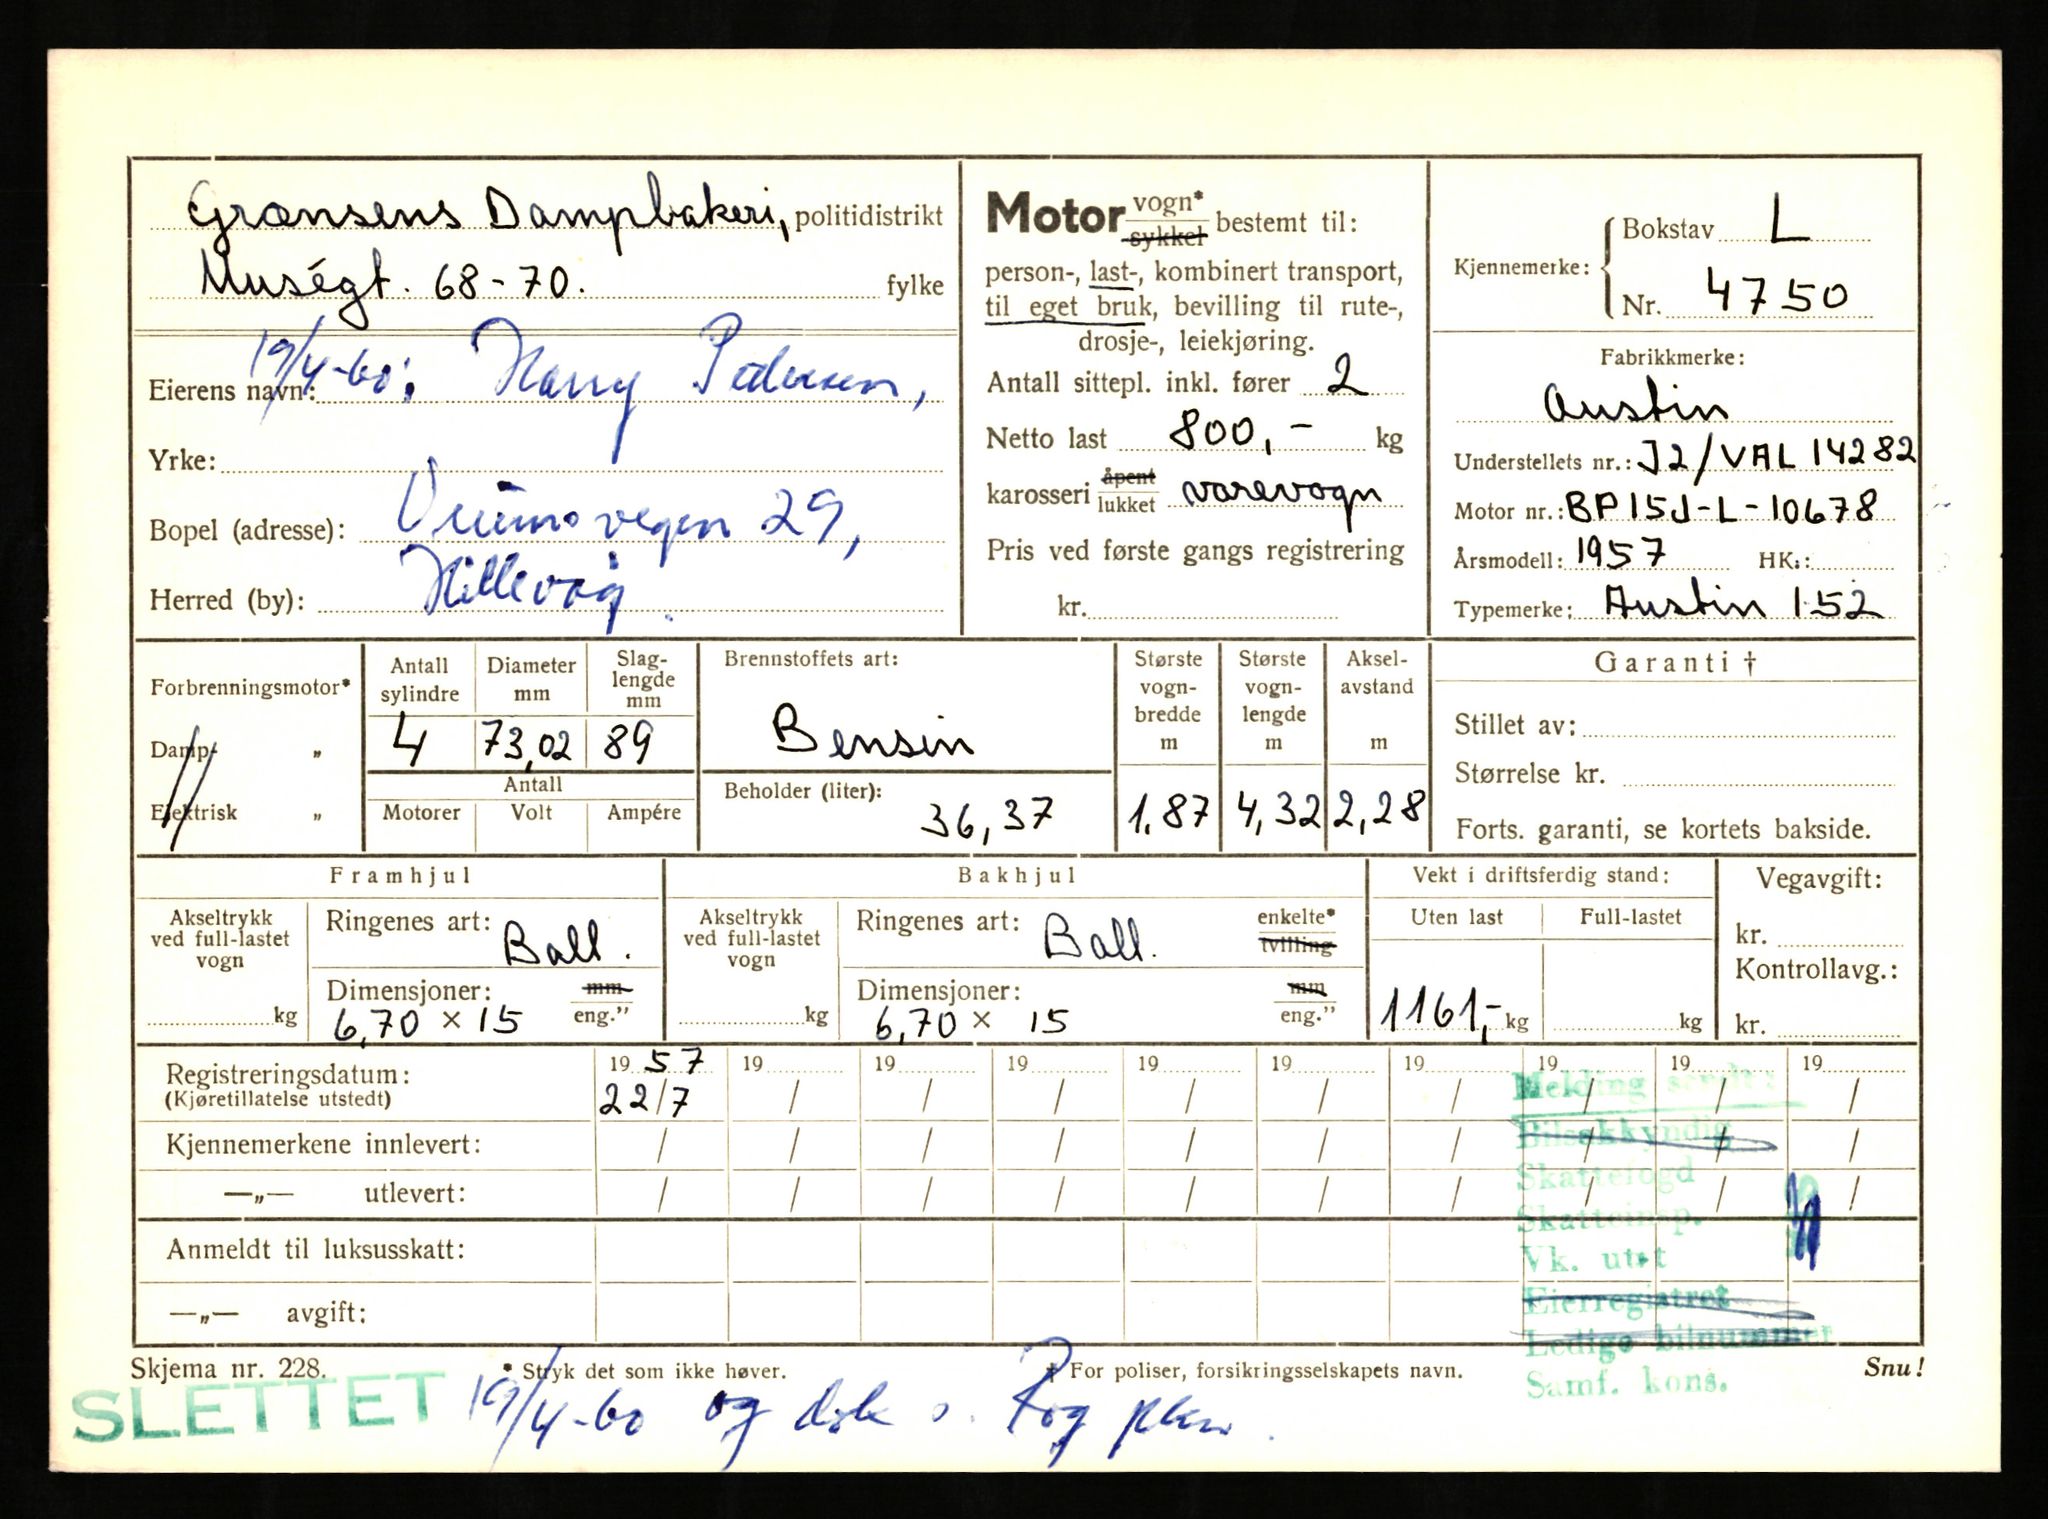 Grænsens Dampbakeri, politidistrikt
Muségt. 68-70. fylke
Eierens navn: 19/4-60: Harry Pedersen,
Yrke:
Bopel (adresse): 29,
Herred (by): Hillevåg
Motor vogn* sykkel bestemt til:
person-, last-, kombinert transport,
til eget bruk, bevilling til rute-,
drosje-, leiekjøring.
Antall sittepl. inkl. fører 2
Netto last 800,- kg
karosseri åpent lukket varevogn
Pris ved første gangs registrering
kr.
Kjennemerke: Bokstav L
Nr. 4750
Fabrikkmerke:
Austin
Understellets nr.: J2/VAL 14282
Motor nr.: BP15J-L-10678
Årsmodell: 1957 HK.:
Typemerke: Austin 152
Forbrenningsmotor*
Damp- „
Elektrisk „
Antall sylindre Diameter mm Slag-lengde mm
4 73,02 89
Antall
Motorer Volt Ampére
Brennstoffets art:
Bensin
Beholder (liter):
36,37
Største vogn-bredde m
1,87
Største vogn-lengde m
4,32
Aksel-avstand m
2,28
Garanti †
Stillet av:
Størrelse kr.
Forts. garanti, se kortets bakside.
Framhjul
Akseltrykk ved full-lastet vogn
kg
Ringenes art: Ball.
Dimensjoner: mm eng."
6,70 × 15
Bakhjul
Akseltrykk ved full-lastet vogn
kg
Ringenes art: Ball. enkelte* tvilling
Dimensjoner: mm eng."
6,70 × 15
Vekt i driftsferdig stand:
Uten last Full-lastet
1161,- kg kg
Vegavgift:
kr.
Kontrollavg.:
kr.
Registreringsdatum: 19 57 19 19 19 19 19 19 19 19 19
(Kjøretillatelse utstedt) 22/7 / / / / / / / / /
Kjennemerkene innlevert: / / / / / / / / / /
—„— utlevert: / / / / / / / / / /
Anmeldt til luksusskatt:
—„— avgift:
Melding sendt:
Bilsakkyndig
Skattefogd
Skatteinsp.
Vk. utst
Eierregistret
Ledige bilnummer
Samf. kons.
Skjema nr. 228. * Stryk det som ikke høver. † For poliser, forsikringsselskapets navn. Snu!
SLETTET 19/4-60 og